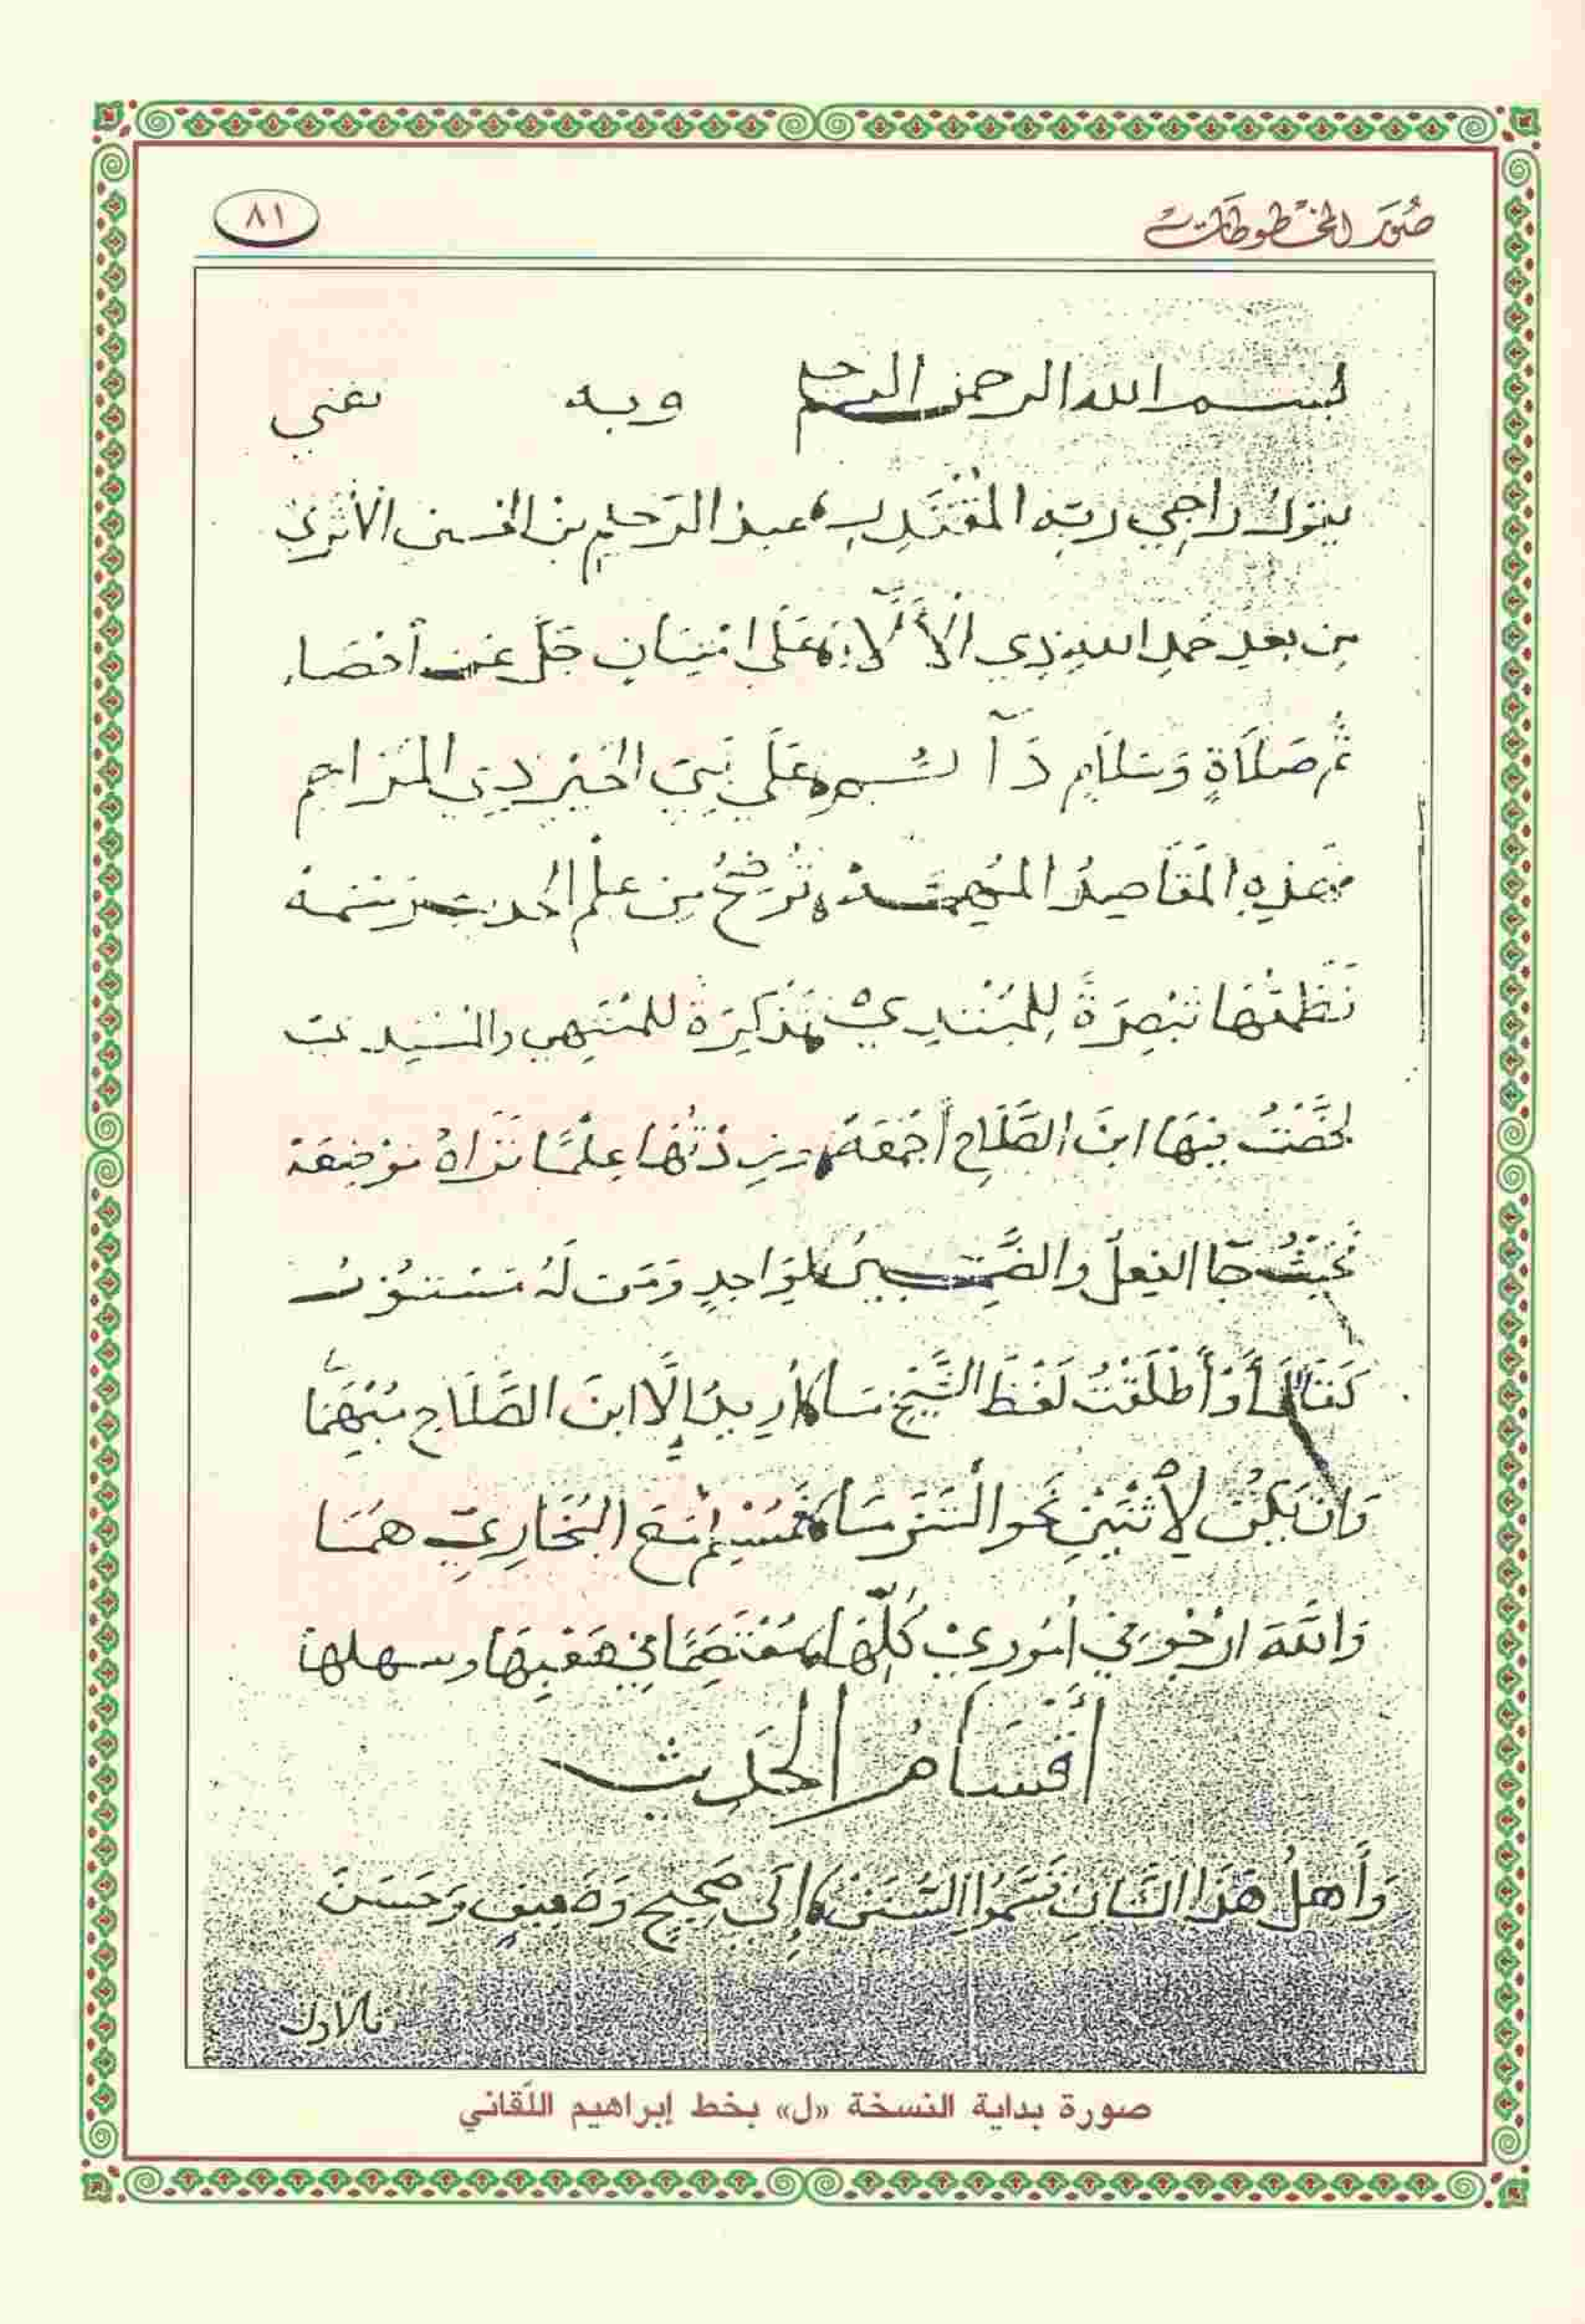 صُوَر المخْطوطَات
٨١
بسم الله الرحمن الرحيم وبه ثقتي
يقول راجي ربّه المُقْتَدِرِ عبد الرَّحيمِ بن الحسين الأثَري
مِن بعدِ حَمدِ اللهِ ذِي الْآلَاءِ عَلَى امْتِنَانٍ جَلَّ عَن احْصَاءِ
ثُمَّ صَلَاةٍ وَسَلَامٍ دَآئِمِ عَلَى نَبِيّ الخَيْرِ ذِي المَرَاحِمِ
فهَذِهِ المَقَاصِدُ المُهِمَّهْ تُوضِحُ مِن عِلْمِ الحديث رَسْمَهْ
نَظَمْتُهَا تَبْصِرَةً لِلمُبْتَدِيْ تَذْكِرَةً لِلمُنْتَهِي والمُسْنِدِ
لَخَّصْتُ فِيهَا ابنَ الصَّلَاحِ أجْمَعَهْ وزِدْتُهَا عِلْمًا تَرَاهُ مَوْضِعَهْ
فَحَيْثُ جَا الفِعلُ والضَّمِيرُ لِوَاحِدٍ وَمَن لَهُ مَسْتُورُ
كَقَالَ أوْ أطْلَقْتُ لَفْظَ الشَّيْخِ مَا أُرِيدُ إلَّا ابنَ الصَّلَاحِ مُبْهِمَا
وَان يَكُنْ لِاثْنَيْنِ نَحو الْتَزَمَا فَمُسْلِمٌ مَعَ البُخَارِيّ هُمَا
وَاللهَ ارْجُو فِي أمُورِيْ كُلِّهَا مُعْتَصَمًا فِي صَعْبِهَا وسهلها
أقْسَامُ الحَدِيث
وَأَهلُ هَذَا الشَّانِ قَسَّمُوا السُّنَنْ إِلَى صَحِيحٍ وَضَعِيفٍ وَحَسَنْ
فالاول
صورة بداية النسخة «ل» بخط إبراهيم اللَّقاني